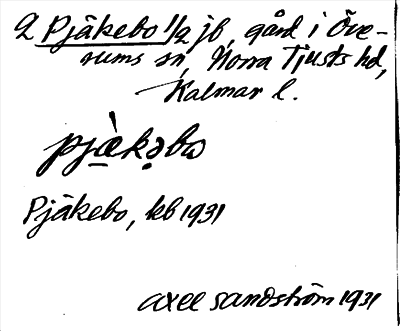 2 Pjäkebo 1/2 jb, gård i Öve-
rums sn, Norra Tjusts hd,
Kalmar l.
pjä̀kəbω
Pjäkebo, kb 1931
Axel Sandström 1931